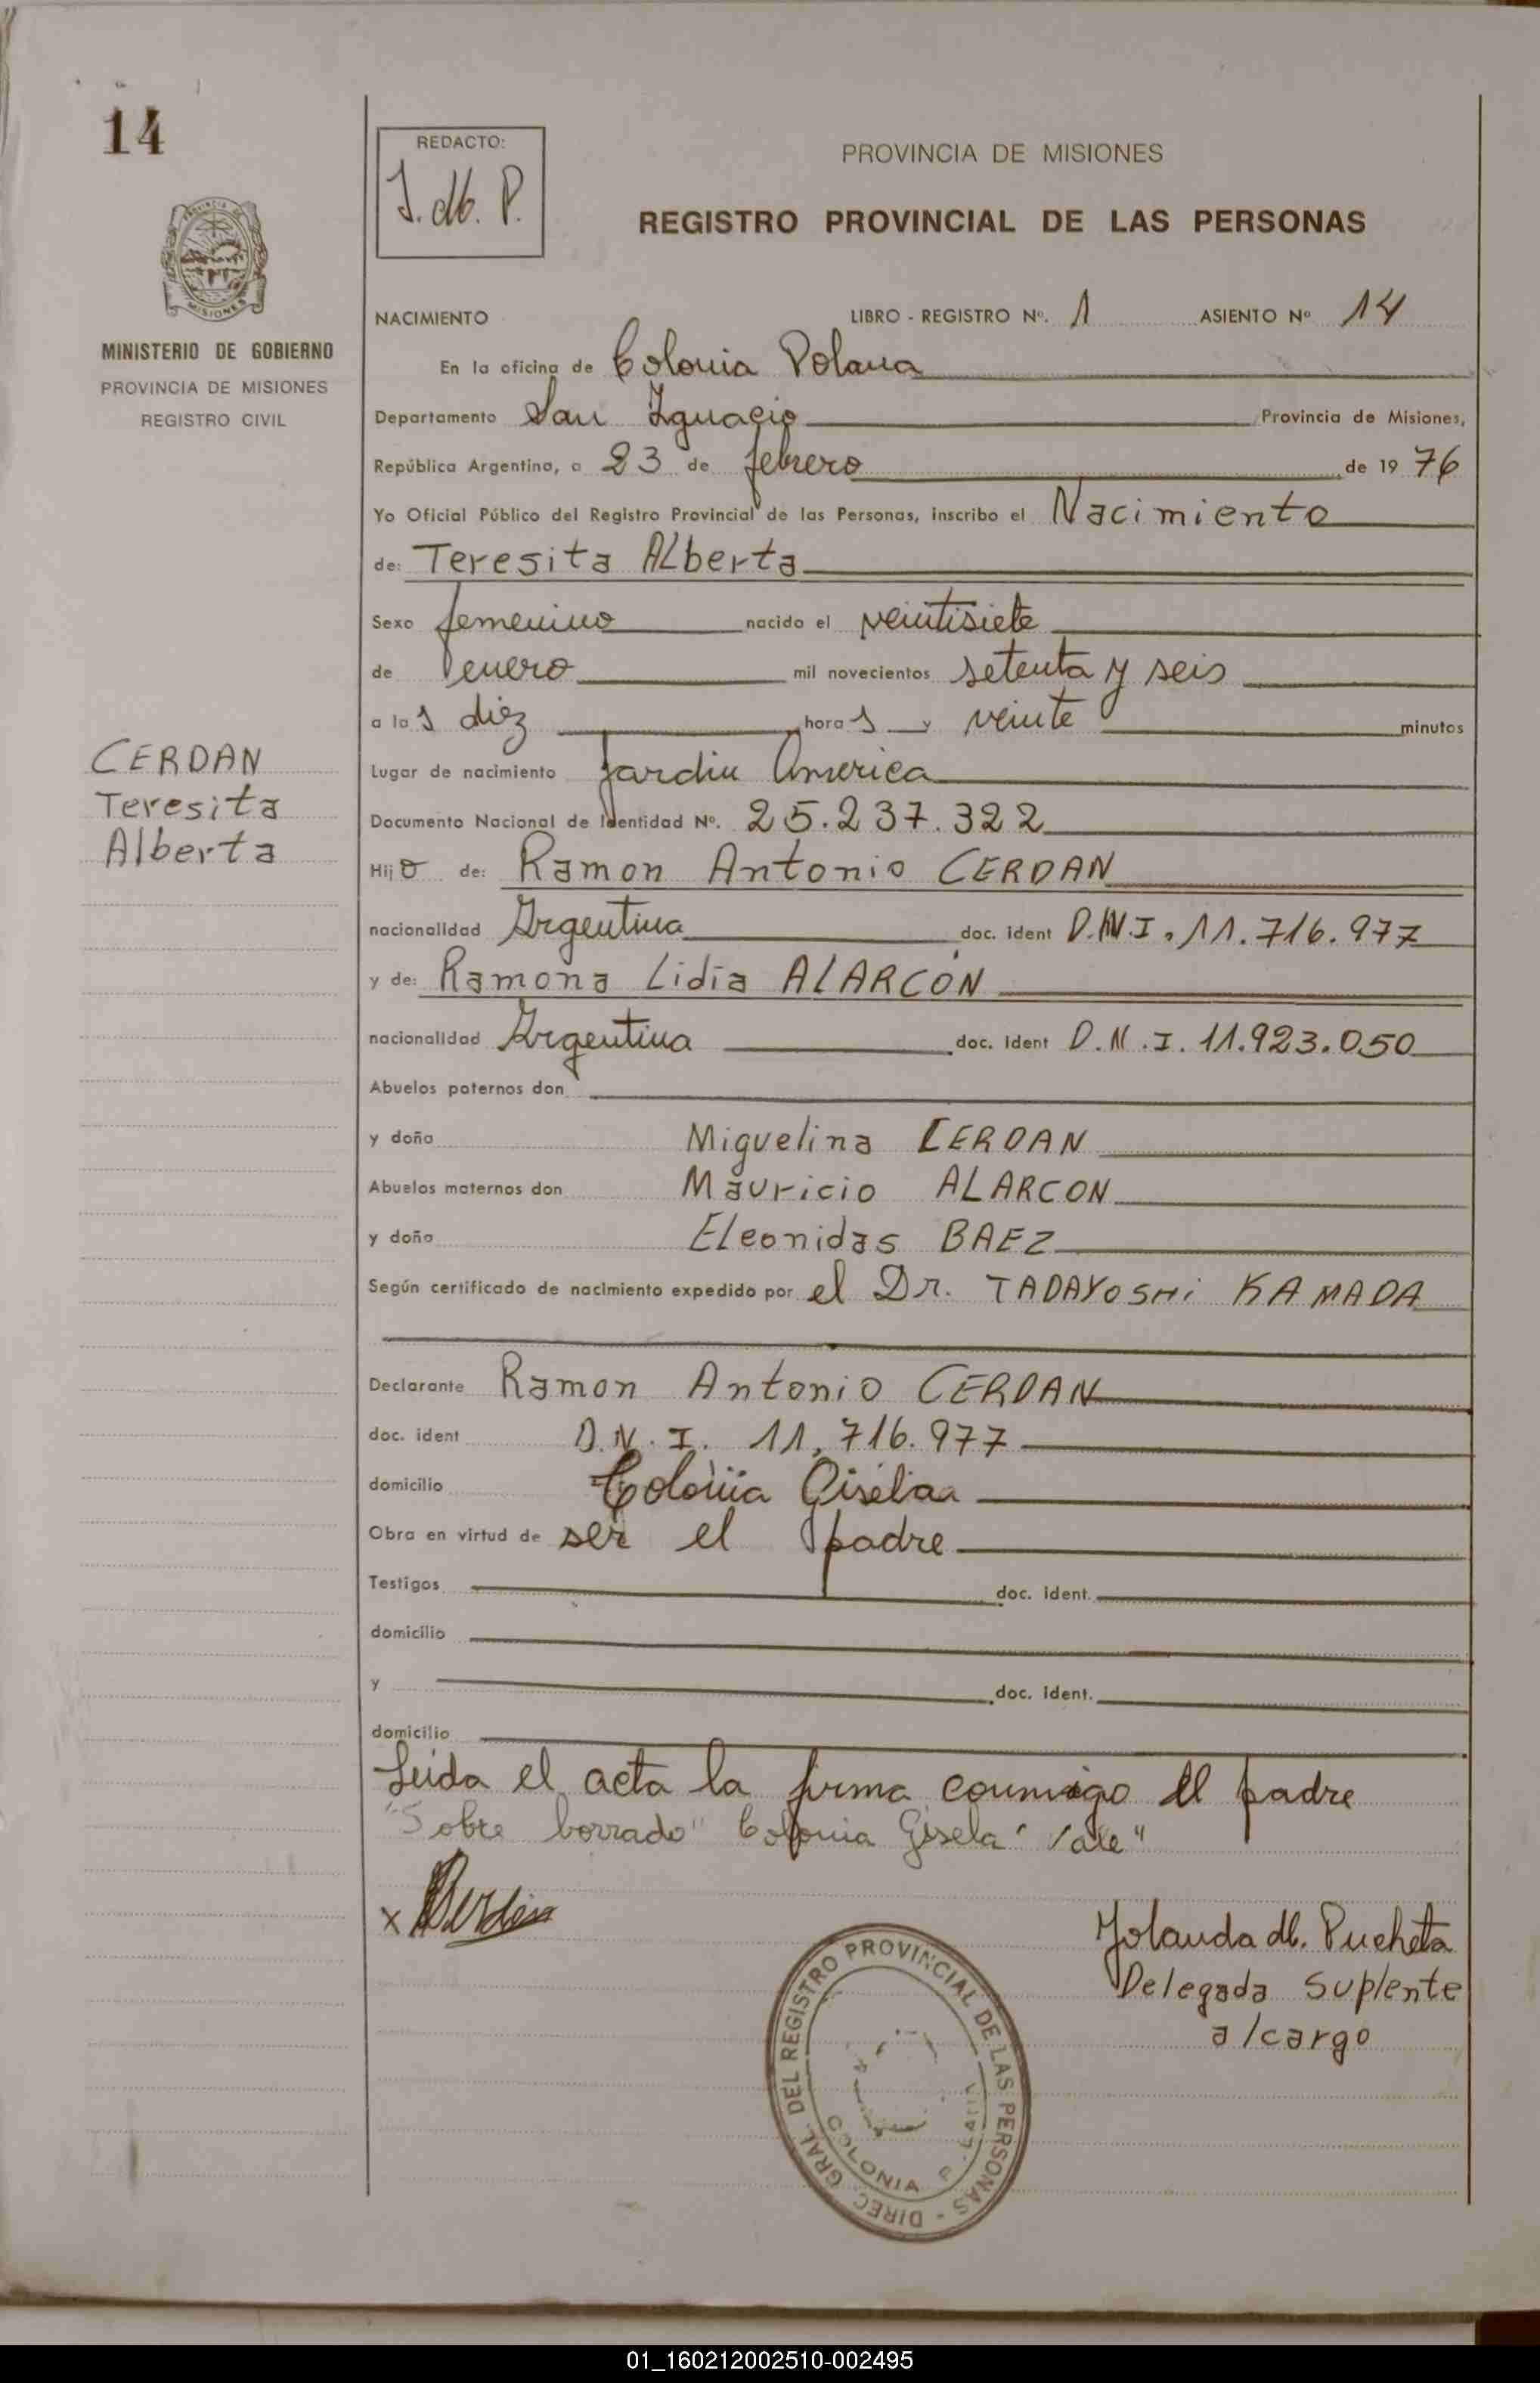 14
REDACTO:
J. db. P.
PROVINCIA DE MISIONES
REGISTRO PROVINCIAL DE LAS PERSONAS
MINISTERIO DE GOBIERNO
PROVINCIA DE MISIONES
REGISTRO CIVIL
NACIMIENTO LIBRO - REGISTRO Nº. 1 ASIENTO Nº 14
En la oficina de Colonia Polana
Departamento San Ignacio Provincia de Misiones,
República Argentina, a 23 de febrero de 19 76
Yo Oficial Público del Registro Provincial de las Personas, inscribo el Nacimiento
de: Teresita Alberta
Sexo femenino nacido el veintisiete
de enero mil novecientos setenta y seis
a las diez horas y veinte minutos
CERDAN
Teresita
Alberta
Lugar de nacimiento Jardin America
Documento Nacional de Identidad Nº. 25.237.322
Hijo de: Ramon Antonio CERDAN
nacionalidad Argentina doc. ident D.N.I. 11.716.977
y de: Ramona Lidia ALARCÓN
nacionalidad Argentina doc. ident D.N.I. 11.923.050
Abuelos paternos don
y doña Miguelina CERDAN
Abuelos maternos don Mauricio ALARCON
y doña Eleonidas BAEZ
Según certificado de nacimiento expedido por el Dr. TADAYOSHi KAMADA
Declarante Ramon Antonio CERDAN
doc. ident D.N.I. 11.716.977
domicilio Colonia
Obra en virtud de ser el padre
Testigos doc. ident.
domicilio
y doc. ident.
domicilio
Leida el acta la firma conmigo el padre
"Sobre borrado" Colonia Gisela "Vale"
x Cerdan
Yolanda db. Pucheta
Delegada Suplente
a/cargo
DIREC. GRAL. DEL REGISTRO PROVINCIAL DE LAS PERSONAS -
COLONIA
01_160212002510-002495